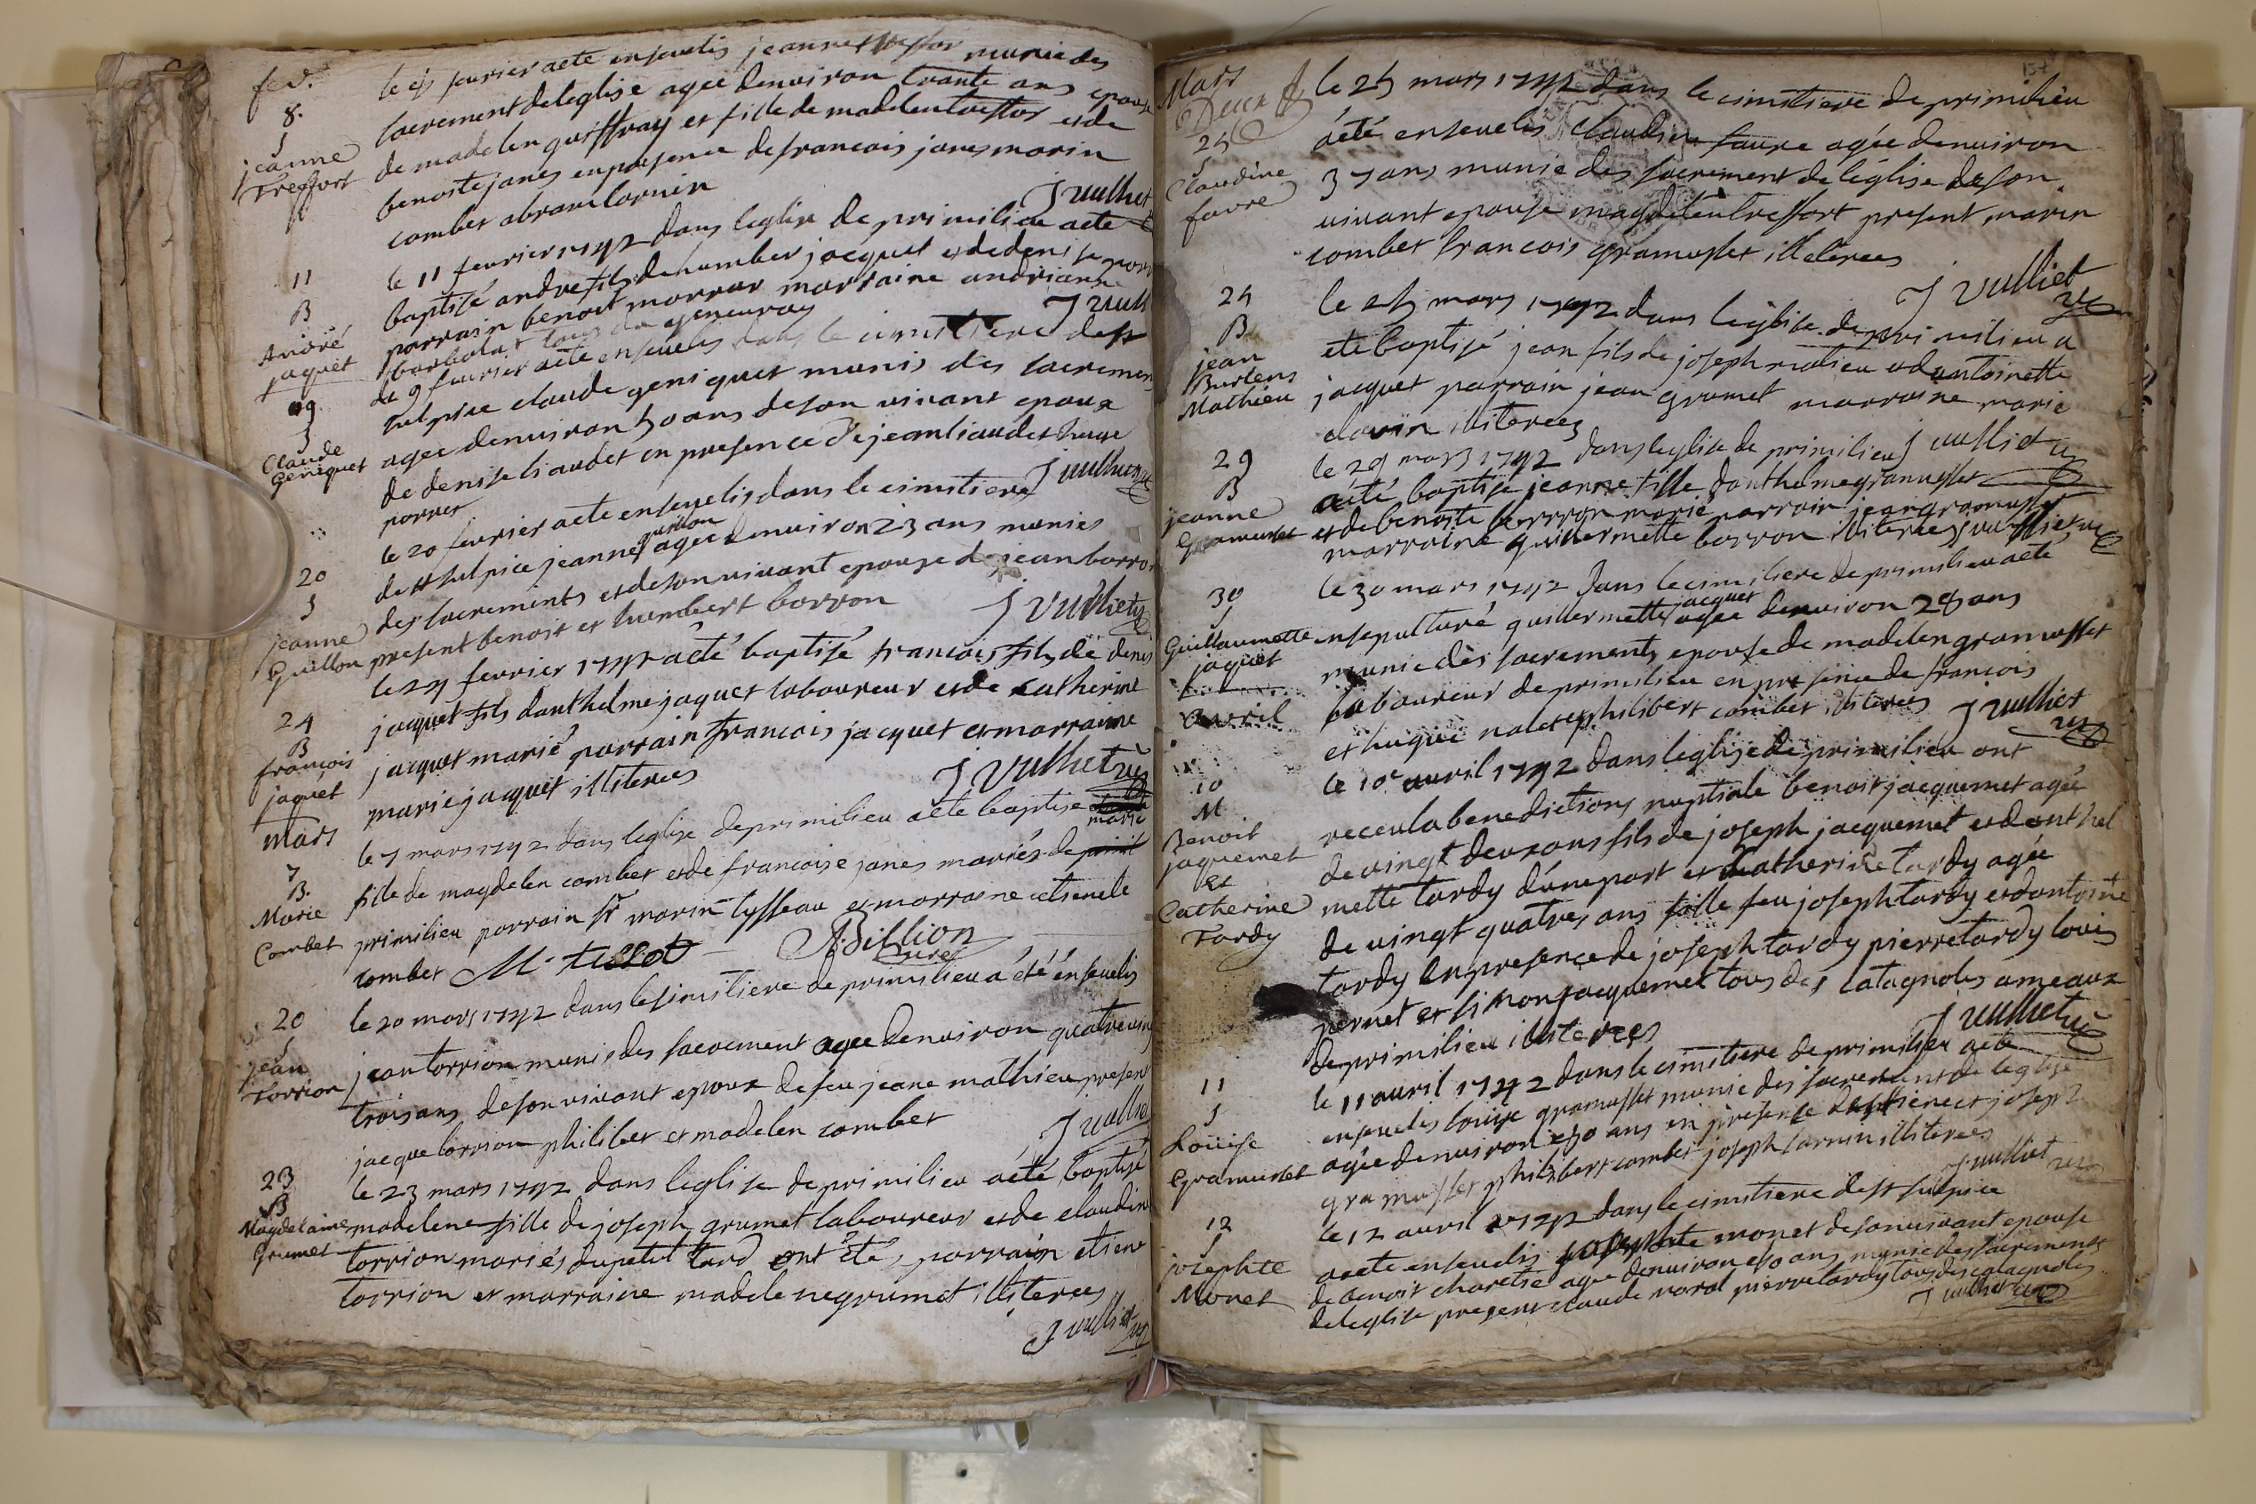 fev.
8.
S
jeanne
Treffort
le 8 fevrier a ete ensevelis jeanne munie des
sacrement de leglise agee denviron trante ans epouse
de madelen guiffray et fille de madelen treffor et de
benoite janes en presence de francois janes morin
combet abram lornin
J vulliet
11
B
André
jaquet
le 11 fevrier 1792 dans leglise de primilieu a ete
baptisé andre fils de humber jacquet et de denise
parrain benoit morrar marraine andrianne
barbolat tous de geneuray
J vull
19
S
Claude
Geniquet
du 9 fevrier a ete ensevelis dans le cimitiere de st
sulpice claude geniquet munis des sacremen
agee denviron 50 ans de son vivant epoux
de denise liaudet en presence de jean liaudet huge
porret
J vulliet
20
S
jeanne
Guillon
le 20 fevrier a ete ensevelis dans le cimitiere
de st sulpice jeanne guillon agee denviron 23 ans munies
des sacrements et de son vivant epouse de jean borron
present benoit et humbert borron
J vulliet
24
B
françois
jaquet
le 24 fevrier 1792 a été baptisé francois fils de denis
jacquet fils danthelme jaquet laboureur et de catherine
jacquet marié parrain francois jacquet et marraine
marie jacquet illiterees
J vulliet
Mars
7
B.
Marie
Combet
le 7 mars 1792 dans leglise de primilieu a ete baptise marie
fille de magdelen combet et de francoise janes mariés de
primilieu parrain sr marin tysseau et marraine
combet M. tissot Billion
curé
20
S
jean
Torrion
le 20 mars 1792 dans le simitiere de primilieu a été ensevelis
jean torrion munis des sacrement agee denviron quatre ving
trois ans de son vivant epoux de feu jeane mathieu present
jacque torrion philibert et madelen combet
J vulliet
23
B
Magdelaine
Grumet
le 23 mars 1792 dans leglise de primilieu a été baptisé
madelene fille de joseph grumet laboureur et de claudine
torrion mariés du petit tard ont été parrain etiene
torrion et marraine madelene grumet illiterees
J vulliet
Mars
25
S
Claudine
favre
le 25 mars 1792 dans le cimitiere de primilieu
a été ensevelis claudine faure agée denviron
37 ans munie des sacrement de léglise de son
vivant epouse magdelen treffort present marin
combet francois gramusset illeterees
J vulliet
25
B
jean
Burlens
Mathieu
le 25 mars 1792 dans léglise de primilieu a
ete baptisé jean fils de joseph matieu et dantoinette
jacquet parrain jean grumet marraine marie
illiterees
J vulliet
29
B
jeanne
Gramusset
le 29 mars 1792 dans leglise de primilieu
a été baptisé jeanne fille danthelme gramusset
et de benoite borron marié parrain jean gramusset
marraine guillermette borron illiterees J vulliet
30
S
Guillaumette
jaquet
le 30 mars 1792 dans le cimitiere de primilieu a été
ensepulturé guillermette jacquet agee denviron 28 ans
munie dès sacrements epouse de madelen gramusset
laboureur de primilieu en presence de françois
et hugue nalet et philibert combet illiterees
J vulliet
Avril
10
M
Benoit
jaquemet
et
Catherine
Tardy
le 10e avril 1792 dans leglise de primilieu ont
receu la benedictions nuptiale benoit jacquemet agée
de vingt deux ans fils de joseph jacquemet et danthel
mette tardy dune part et catherine tardy agée
de vingt quatres ans fille feu joseph tardy et dantoine
tardy en presence de joseph tardy pierre tardy louis
pernet et simon jacquemet tous des catagnoles ameaux
de primilieu illiterees
J vulliet
11
S
Louise
Gramusset
le 11 avril 1792 dans le cimitiere de primilieu a ete
ensevelis louise gramusset munie des sacrements de leglise
agée denviron ans en presence detiene et joseph
gramusset philibert combet joseph lornin illiterees
J vulliet
12
S
josephte
Monet
le 12 avril 1792 dans le cimitiere de st sulpice
a ete ensevelis josephte monet de son vivant epouse
de benoit charetie agee denviron ans munie des sacrements
de leglise present claude morel pierre tardy tous des catagnoles
J vulliet